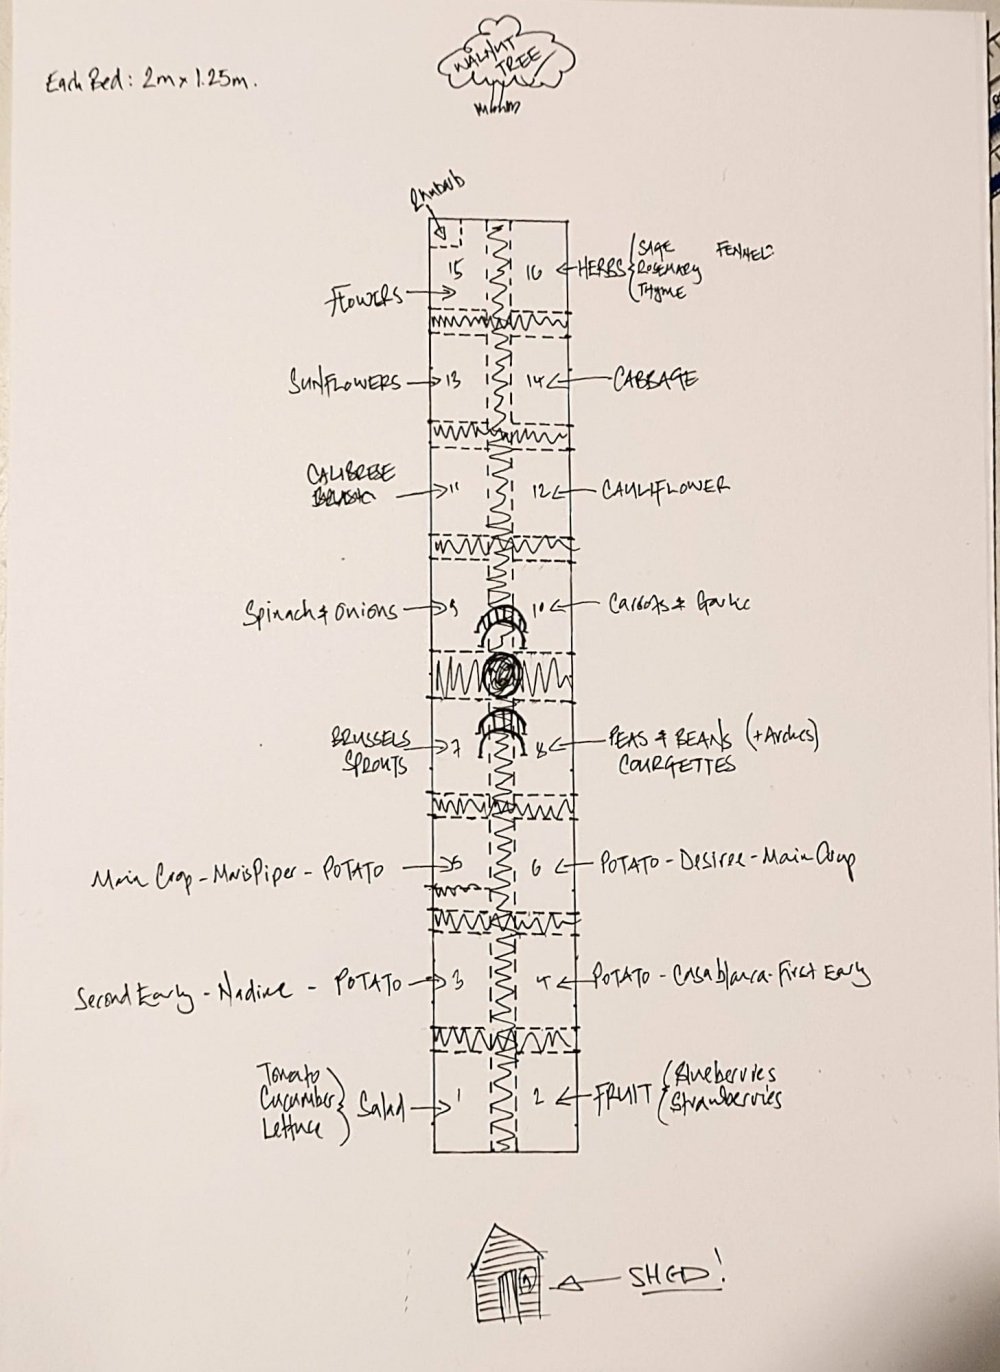 WALNUT
TREE
Each Bed: 2m x 1.25m.
Rhubarb
15
16
HERBS
SAGE
FENNEL
ROSEMARY
THYME
FLOWERS
SUNFLOWERS
13
14
CABBAGE
CALIBRESE
11
12
CAULIFLOWER
Spinach & Onions
9
10
Carrots & Garlic
BRUSSELS
SPROUTS
7
8
PEAS & BEANS (+Arches)
COURGETTES
Main Crop - Maris Piper - POTATO
5
6
POTATO - Desiree - Main Crop
Second Early - Nadine - POTATO
3
4
POTATO - Casablanca - First Early
Tomato
Cucumber
Lettuce
Salad
1
2
FRUIT
Blueberries
Strawberries
SHED!